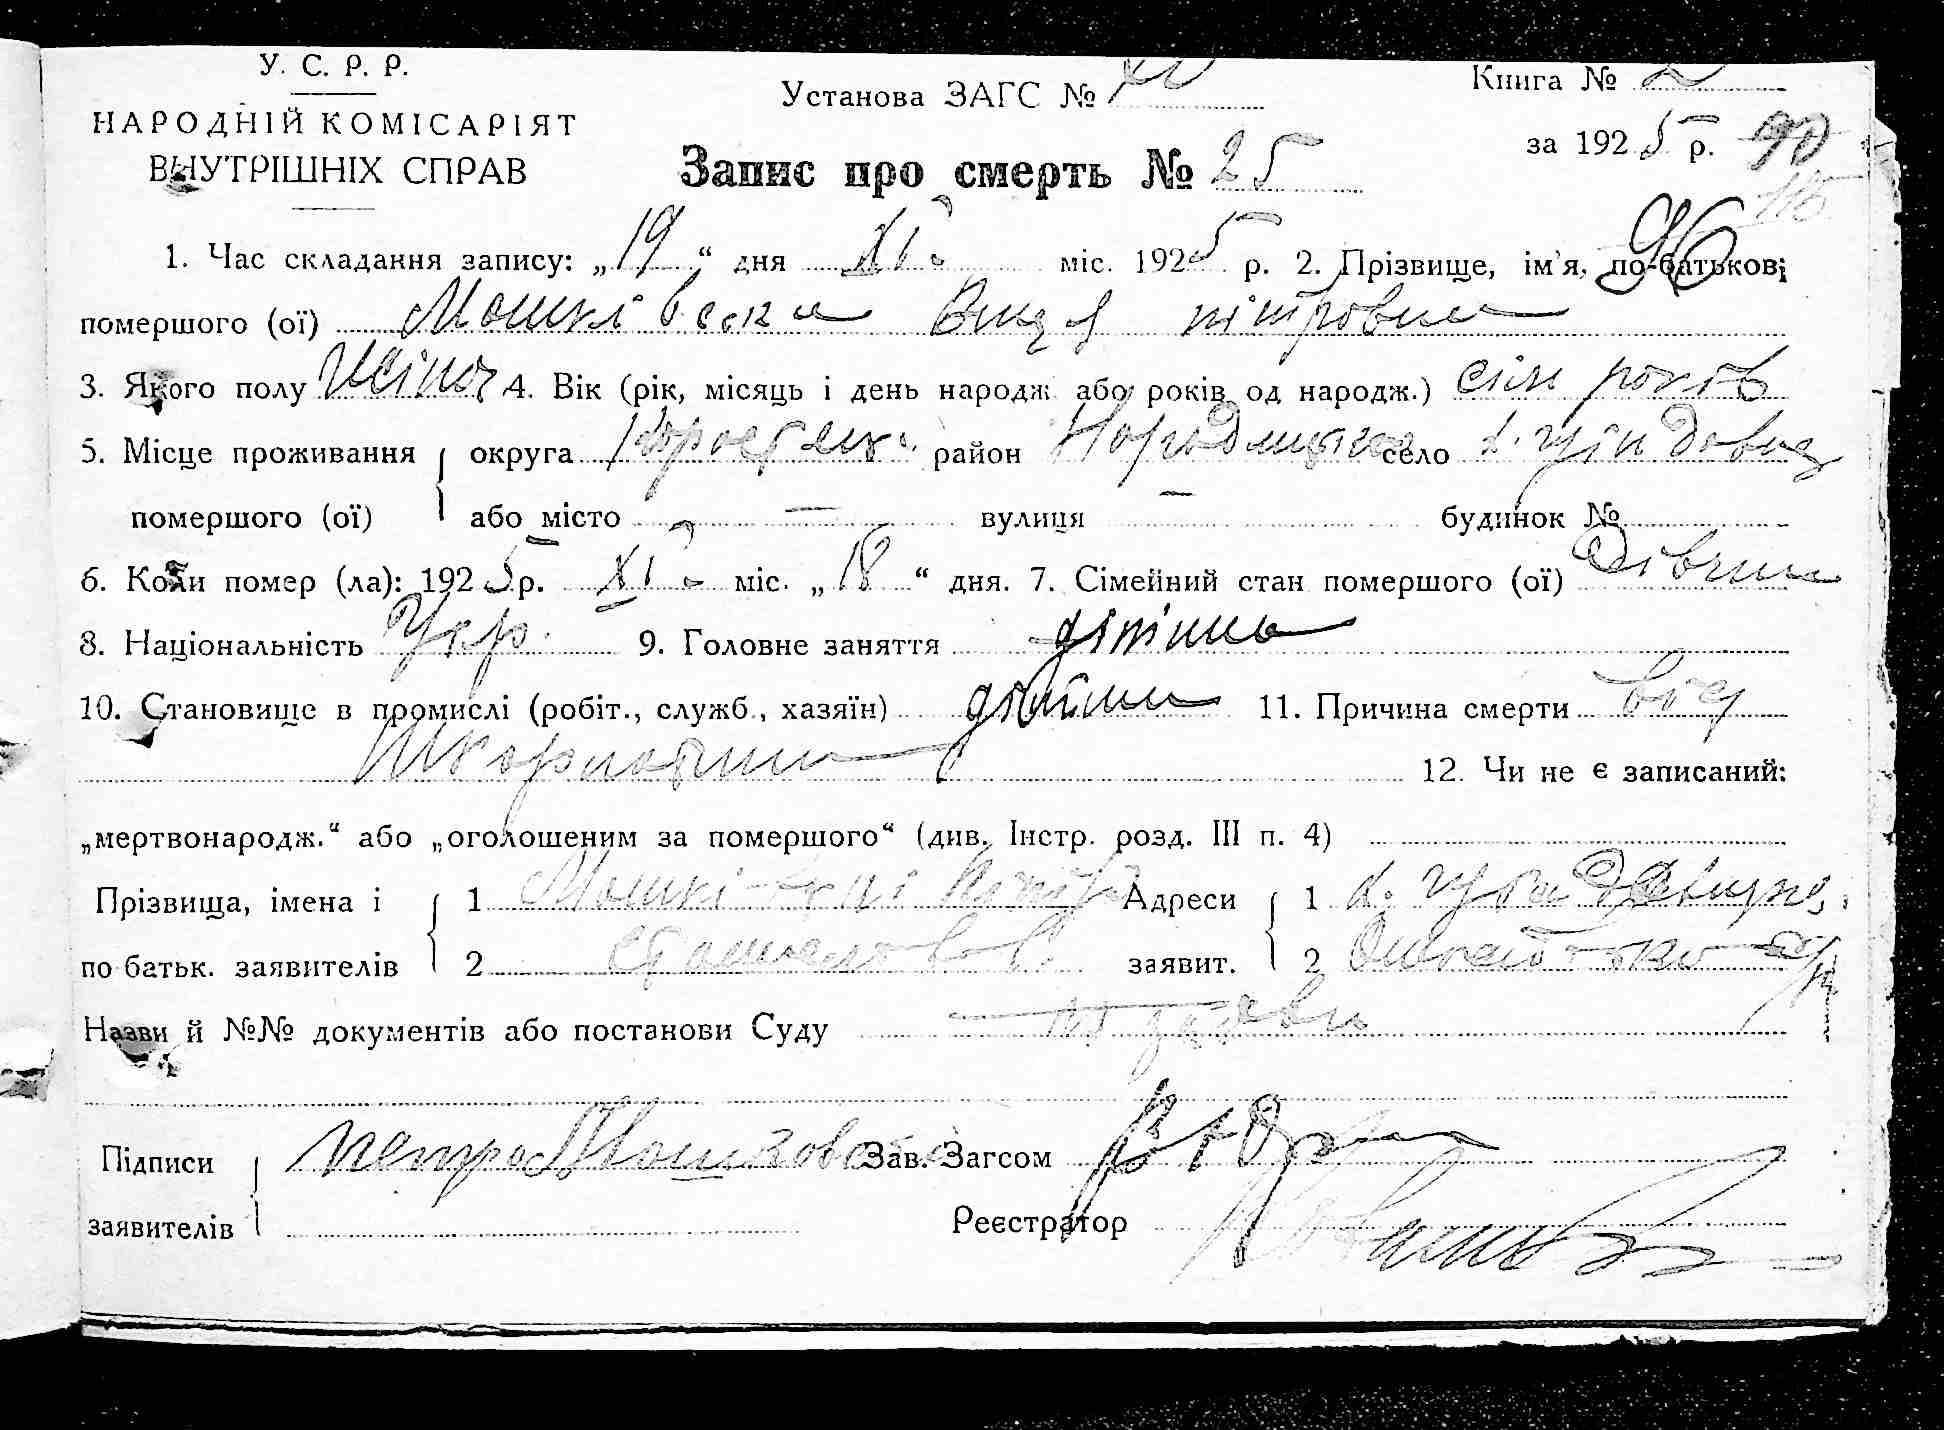 У. С. Р. Р.
НАРОДНІЙ КОМІСАРІЯТ
ВНУТРІШНІХ СПРАВ
Установа ЗАГС №
Книга № 2
за 1925 р. 90
115
96
Запис про смерть № 25
1. Час складання запису: „19“ дня XI. міс. 1925 р. 2. Прізвище, ім'я, по-батькові
помершого (ої) Мошківська пітровна
3. Якого полу жіноч 4. Вік (рік, місяць і день народж. або років од народж.) сім років
5. Місце проживання округа район Народицьк село х.
помершого (ої) або місто — вулиця — будинок №
6. Коли помер (ла): 1925 р. XI. міс. „18“ дня. 7. Сімейний стан помершого (ої) дівчина
8. Національність Укр. 9. Головне заняття дітина
10. Становище в промислі (робіт., служб., хазяїн) дітина 11. Причина смерти від
Шкорлатини 12. Чи не є записаний:
„мертвонародж.“ або „оголошеним за помершого“ (див. Інстр. розд. III п. 4)
Прізвища, імена і 1 Адреси 1 х.
по батьк. заявителів 2 заявит. 2
Назви й №№ документів або постанови Суду по заяви
Підписи Петро Мошковс Зав. Загсом
заявителів Реєстратор